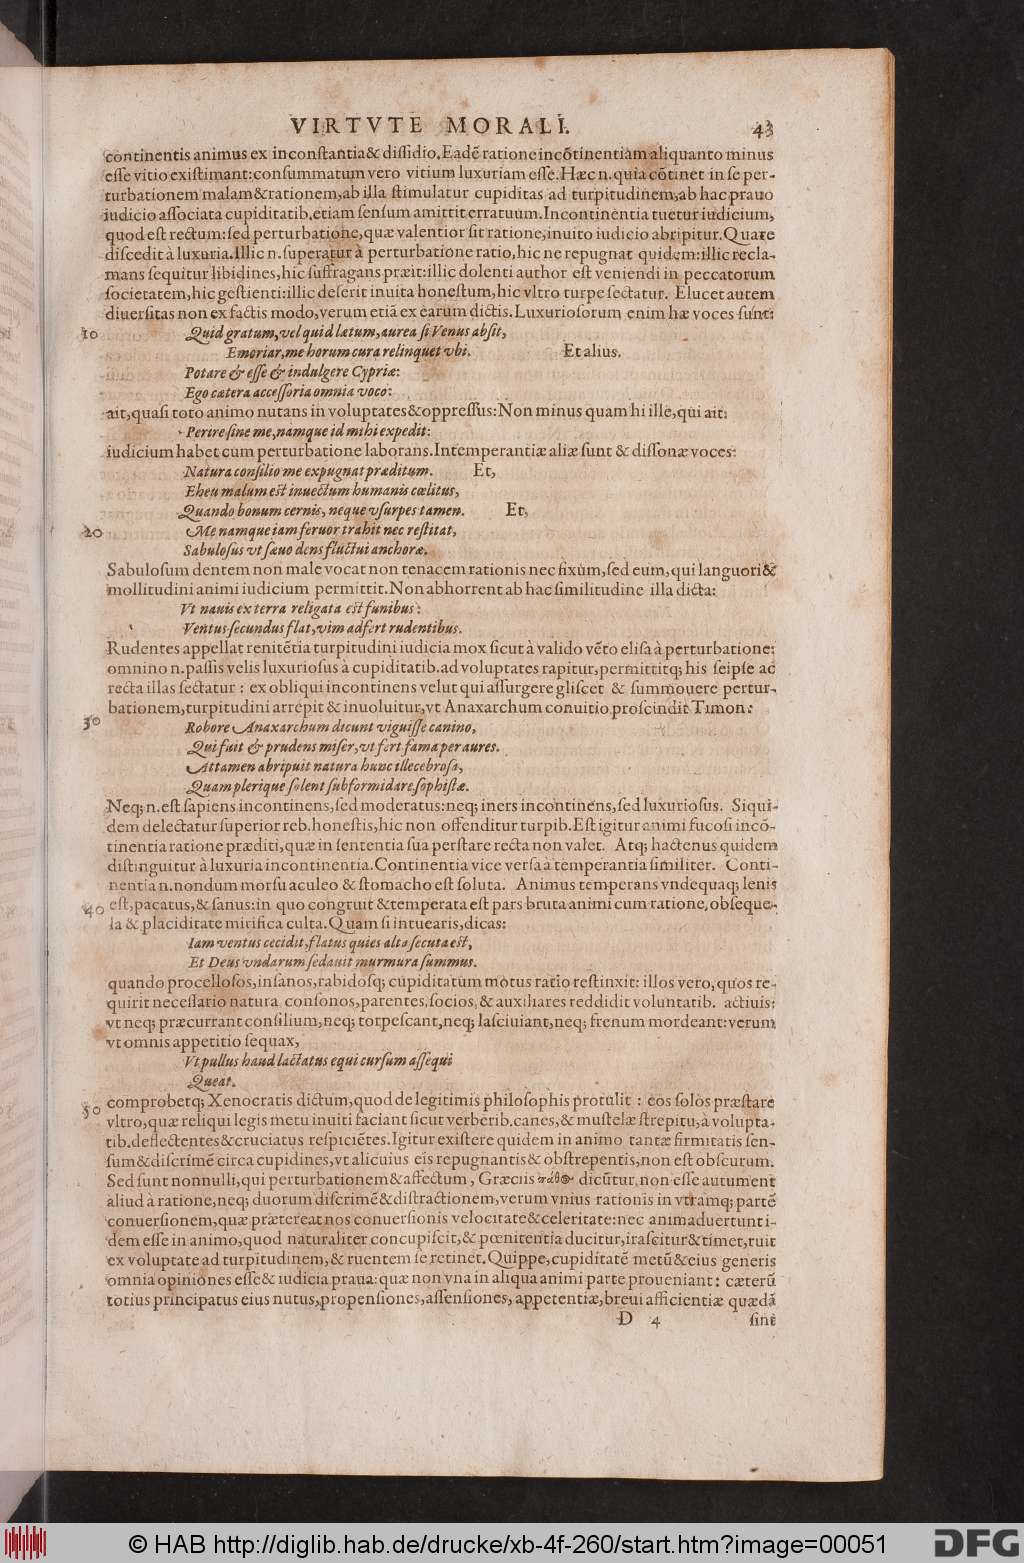 VIRTVTE MORALI. 43
continentis animus ex inconſtantia & diſſidio. Eadē ratione incōtinentiam aliquanto minus
eſſe vitio exiſtimant: conſummatum vero vitium luxuriam eſſe. Hæc n. quia cōtinet in ſe per-
turbationem malam & rationem, ab illa ſtimulatur cupiditas ad turpitudinem, ab hac prauo
iudicio aſſociata cupiditatib. etiam ſenſum amittit erratuum. Incontinentia tuetur iudicium,
quod eſt rectum: ſed perturbatione, quæ valentior ſit ratione, inuito iudicio abripitur. Quare
diſcedit à luxuria. Illic n. ſuperatur à perturbatione ratio, hic ne repugnat quidem: illic recla-
mans ſequitur libidines, hic ſuffragans præit: illic dolenti author eſt veniendi in peccatorum
ſocietatem, hic geſtienti: illic deſerit inuita honeſtum, hic vltro turpe ſectatur. Elucet autem
diuerſitas non ex factis modo, verum etiā ex earum dictis. Luxurioſorum enim hæ voces ſunt:
10 Quid gratum, vel quid lætum, aurea ſi Venus abſit,
Emoriar, me horum cura relinquet vbi. Et alius.
Potare & eſſe & indulgere Cypriæ:
Ego cætera acceſſoria omnia voco:
ait, quaſi toto animo nutans in voluptates & oppreſſus: Non minus quam hi ille, qui ait:
Perire ſine me, namque id mihi expedit:
iudicium habet cum perturbatione laborans. Intemperantiæ aliæ ſunt & diſſonæ voces:
Natura conſilio me expugnat præditum. Et,
Eheu malum eſt inuectum humanis cœlitus,
Quando bonum cernis, neque vſurpes tamen. Et,
20 Me namque iam feruor trahit nec reſtitat,
Sabuloſus vt ſæuo dens fluctui anchoræ.
Sabuloſum dentem non male vocat non tenacem rationis nec fixum, ſed eum, qui languori &
mollitudini animi iudicium permittit. Non abhorrent ab hac ſimilitudine illa dicta:
Vt nauis ex terra religata eſt funibus:
Ventus ſecundus flat, vim adfert rudentibus.
Rudentes appellat renitētia turpitudini iudicia mox ſicut à valido vēto eliſa à perturbatione:
omnino n. paſſis velis luxurioſus à cupiditatib. ad voluptates rapitur, permittitq; his ſeipſe ac
recta illas ſectatur: ex obliqui incontinens velut qui aſſurgere gliſcet & ſummouere pertur-
bationem, turpitudini arrepit & inuoluitur, vt Anaxarchum conuitio proſcindit Timon:
30 Robore Anaxarchum dicunt viguiſſe canino,
Qui fuit & prudens miſer, vt fert fama per aures.
Attamen abripuit natura hunc illecebroſa,
Quam plerique ſolent ſubformidare ſophiſtæ.
Neq; n. eſt ſapiens incontinens, ſed moderatus: neq; iners incontinens, ſed luxurioſus. Siqui-
dem delectatur ſuperior reb. honeſtis, hic non offenditur turpib. Eſt igitur animi fucoſi incō-
tinentia ratione præditi, quæ in ſententia ſua perſtare recta non valet. Atq; hactenus quidem
diſtinguitur à luxuria incontinentia. Continentia vice verſa à temperantia ſimiliter. Conti-
nentia n. nondum morſu aculeo & ſtomacho eſt ſoluta. Animus temperans vndequaq; lenis
40 eſt, pacatus, & ſanus: in quo congruit & temperata eſt pars bruta animi cum ratione, obſeque-
la & placiditate mirifica culta. Quam ſi intuearis, dicas:
Iam ventus cecidit, flatus quies alta ſecuta eſt,
Et Deus vndarum ſedauit murmura ſummus.
quando procelloſos, inſanos, rabidoſq; cupiditatum motus ratio reſtinxit: illos vero, quos re-
quirit neceſſario natura conſonos, parentes, ſocios, & auxiliares reddidit voluntatib. actiuis:
vt neq; præcurrant conſilium, neq; torpeſcant, neq; laſciuiant, neq; frenum mordeant: verum
vt omnis appetitio ſequax,
Vt pullus haud lactatus equi curſum aſſequi
Queat.
50 comprobetq; Xenocratis dictum, quod de legitimis philoſophis protulit: eos ſolos præſtare
vltro, quæ reliqui legis metu inuiti faciant ſicut verberib. canes, & muſtelæ ſtrepitu, à volupta-
tib. deflectentes & cruciatus reſpiciētes. Igitur exiſtere quidem in animo tantæ firmitatis ſen-
ſum & diſcrimē circa cupidines, vt alicuius eis repugnantis & obſtrepentis, non eſt obſcurum.
Sed ſunt nonnulli, qui perturbationem & affectum, Græciis πάθος dicūtur, non eſſe autument
aliud à ratione, neq; duorum diſcrimē & diſtractionem, verum vnius rationis in vtramq; partē
conuerſionem, quæ prætereat nos conuerſionis velocitate & celeritate: nec animaduertunt i-
dem eſſe in animo, quod naturaliter concupiſcit, & pœnitentia ducitur, iraſcitur & timet, ruit
ex voluptate ad turpitudinem, & ruentem ſe retinet. Quippe, cupiditatē metū & eius generis
omnia opiniones eſſe & iudicia praua: quæ non vna in aliqua animi parte proueniant: cæterū
totius principatus eius nutus, propenſiones, aſſenſiones, appetentiæ, breui afficientiæ quædā
D 4 ſint
© HAB http://diglib.hab.de/drucke/xb-4f-260/start.htm?image=00051
DFG